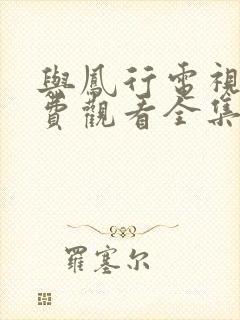 與鳳行電視
費觀看全集
羅塞尔